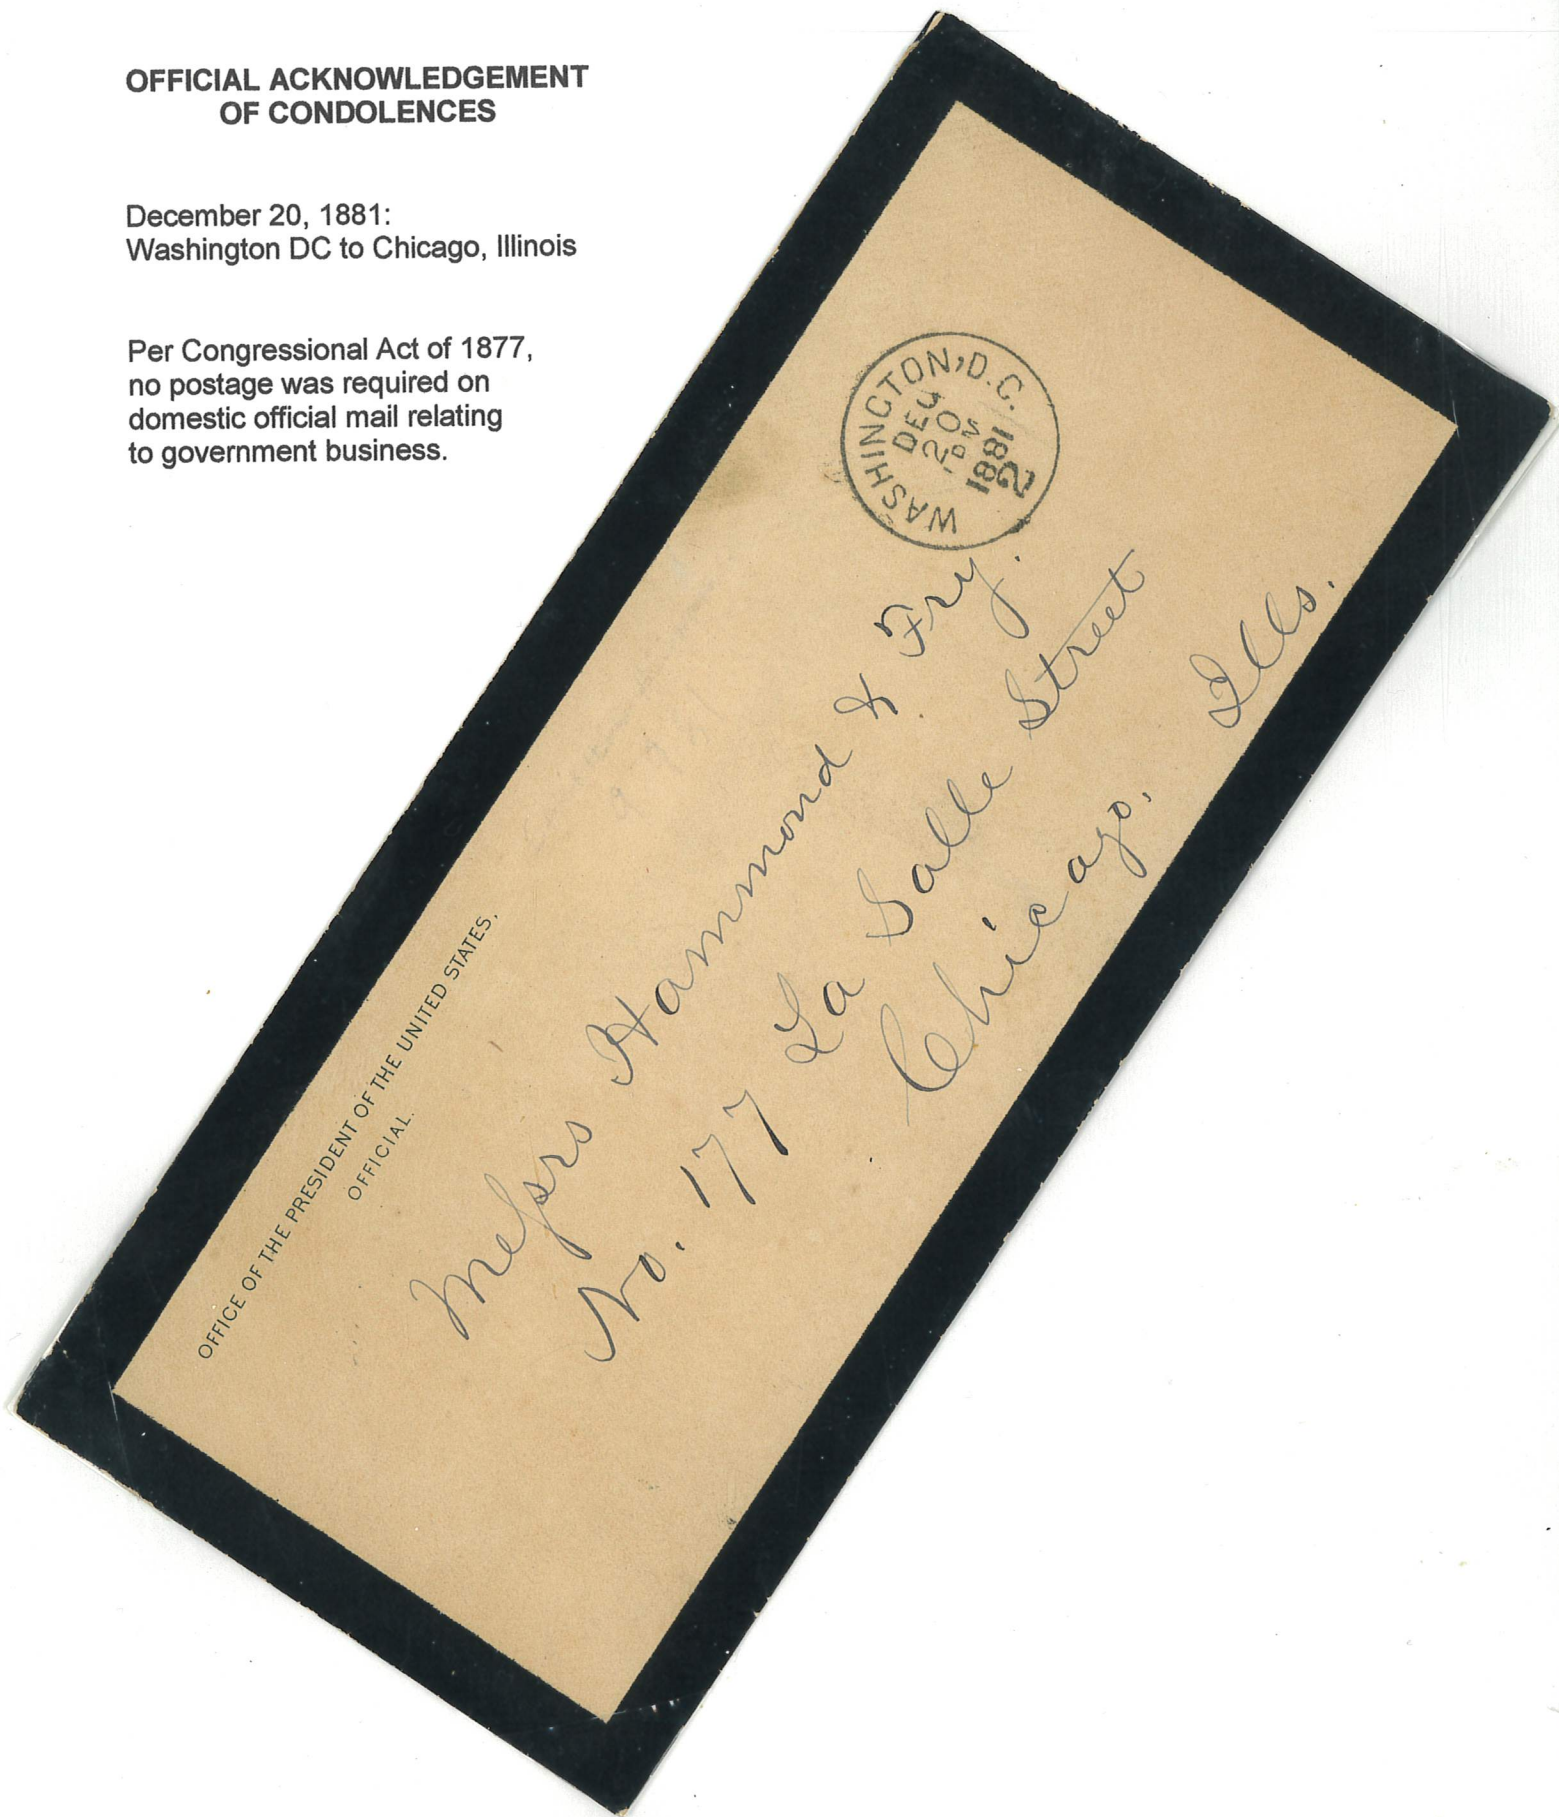 OFFICIAL ACKNOWLEDGEMENT
OF CONDOLENCES
December 20, 1881:
Washington DC to Chicago, Illinois
Per Congressional Act of 1877,
no postage was required on
domestic official mail relating
to government business.
OFFICE OF THE PRESIDENT OF THE UNITED STATES.
OFFICIAL.
WASHINGTON, D.C.
DEC
20
PM
1881
2
Messrs Hammond & Fry.
No. 177 La Salle Street
Chicago. Ills.